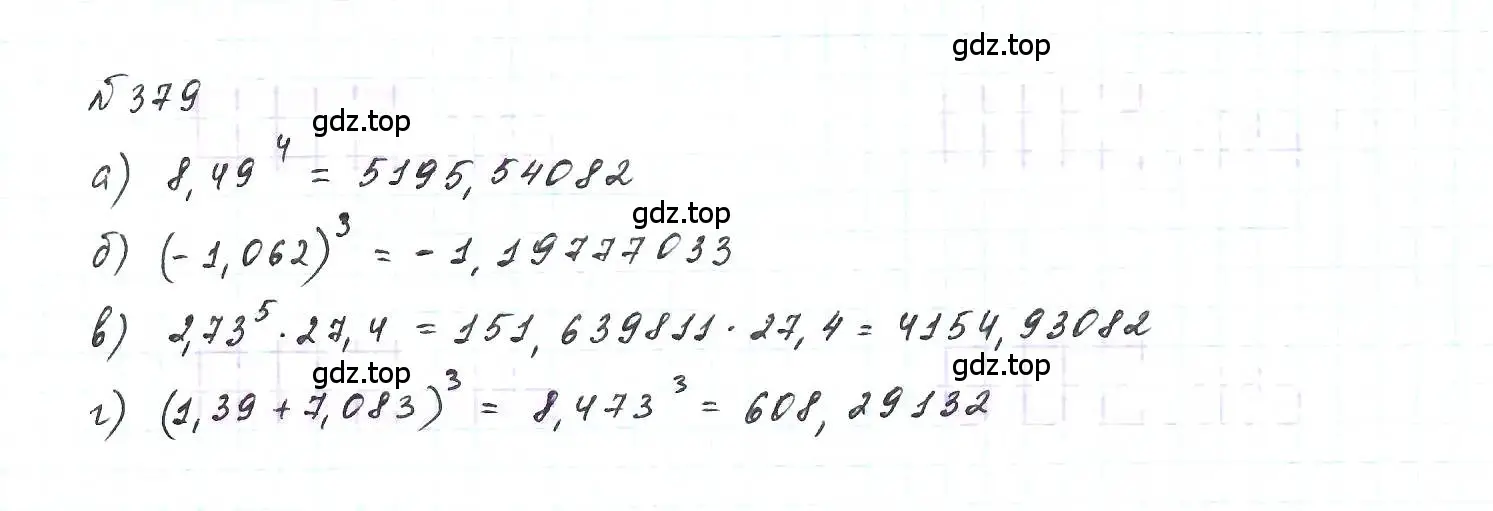 gdz.top
№379
gdz.top
а) 8,49⁴ = 5195,54082
gdz.top
б) (-1,062)³ = -1,19777033
в) 2,73⁵ · 27,4 = 151,639811 · 27,4 = 4154,93082
gdz.top
gdz.top
г) (1,39 + 7,083)³ = 8,473³ = 608,29132